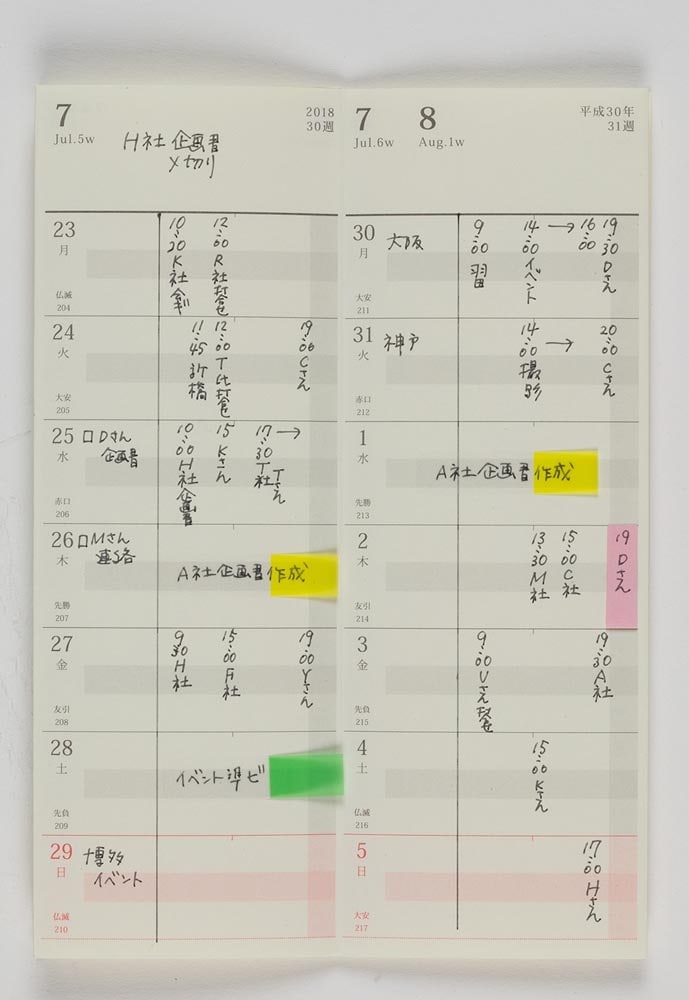 7
Jul.5w
H社 企画書
〆切り
2018
30週
23
月
仏滅
204
10:20 K社
12:00 R社打合せ
24
火
大安
205
11:45 新橋
12:00 T社打合せ
19:00 Cさん
25
水
赤口
206
□Dさん
企画書
10:00 H社企画書
15 Kさん
17:30 T社 Tさん →
26
木
先勝
207
□Mさん
連絡
A社企画書作成
27
金
友引
208
9:30 H社
15:00 F社
19:00 Yさん
28
土
先負
209
イベント準ビ
29
日
仏滅
210
博多
イベント
7
Jul.6w
8
Aug.1w
平成30年
31週
30
月
大安
211
大阪
9:00
14:00 イベント
→
16:00
19:30 Dさん
31
火
赤口
212
神戸
14:00 撮影
→
20:00 Cさん
1
水
先勝
213
A社企画書作成
2
木
友引
214
13:30 M社
15:00 C社
19 Dさん
3
金
先負
215
9:00 Uさん
19:30 A社
4
土
仏滅
216
15:00 Kさん
5
日
大安
217
17:00 Hさん